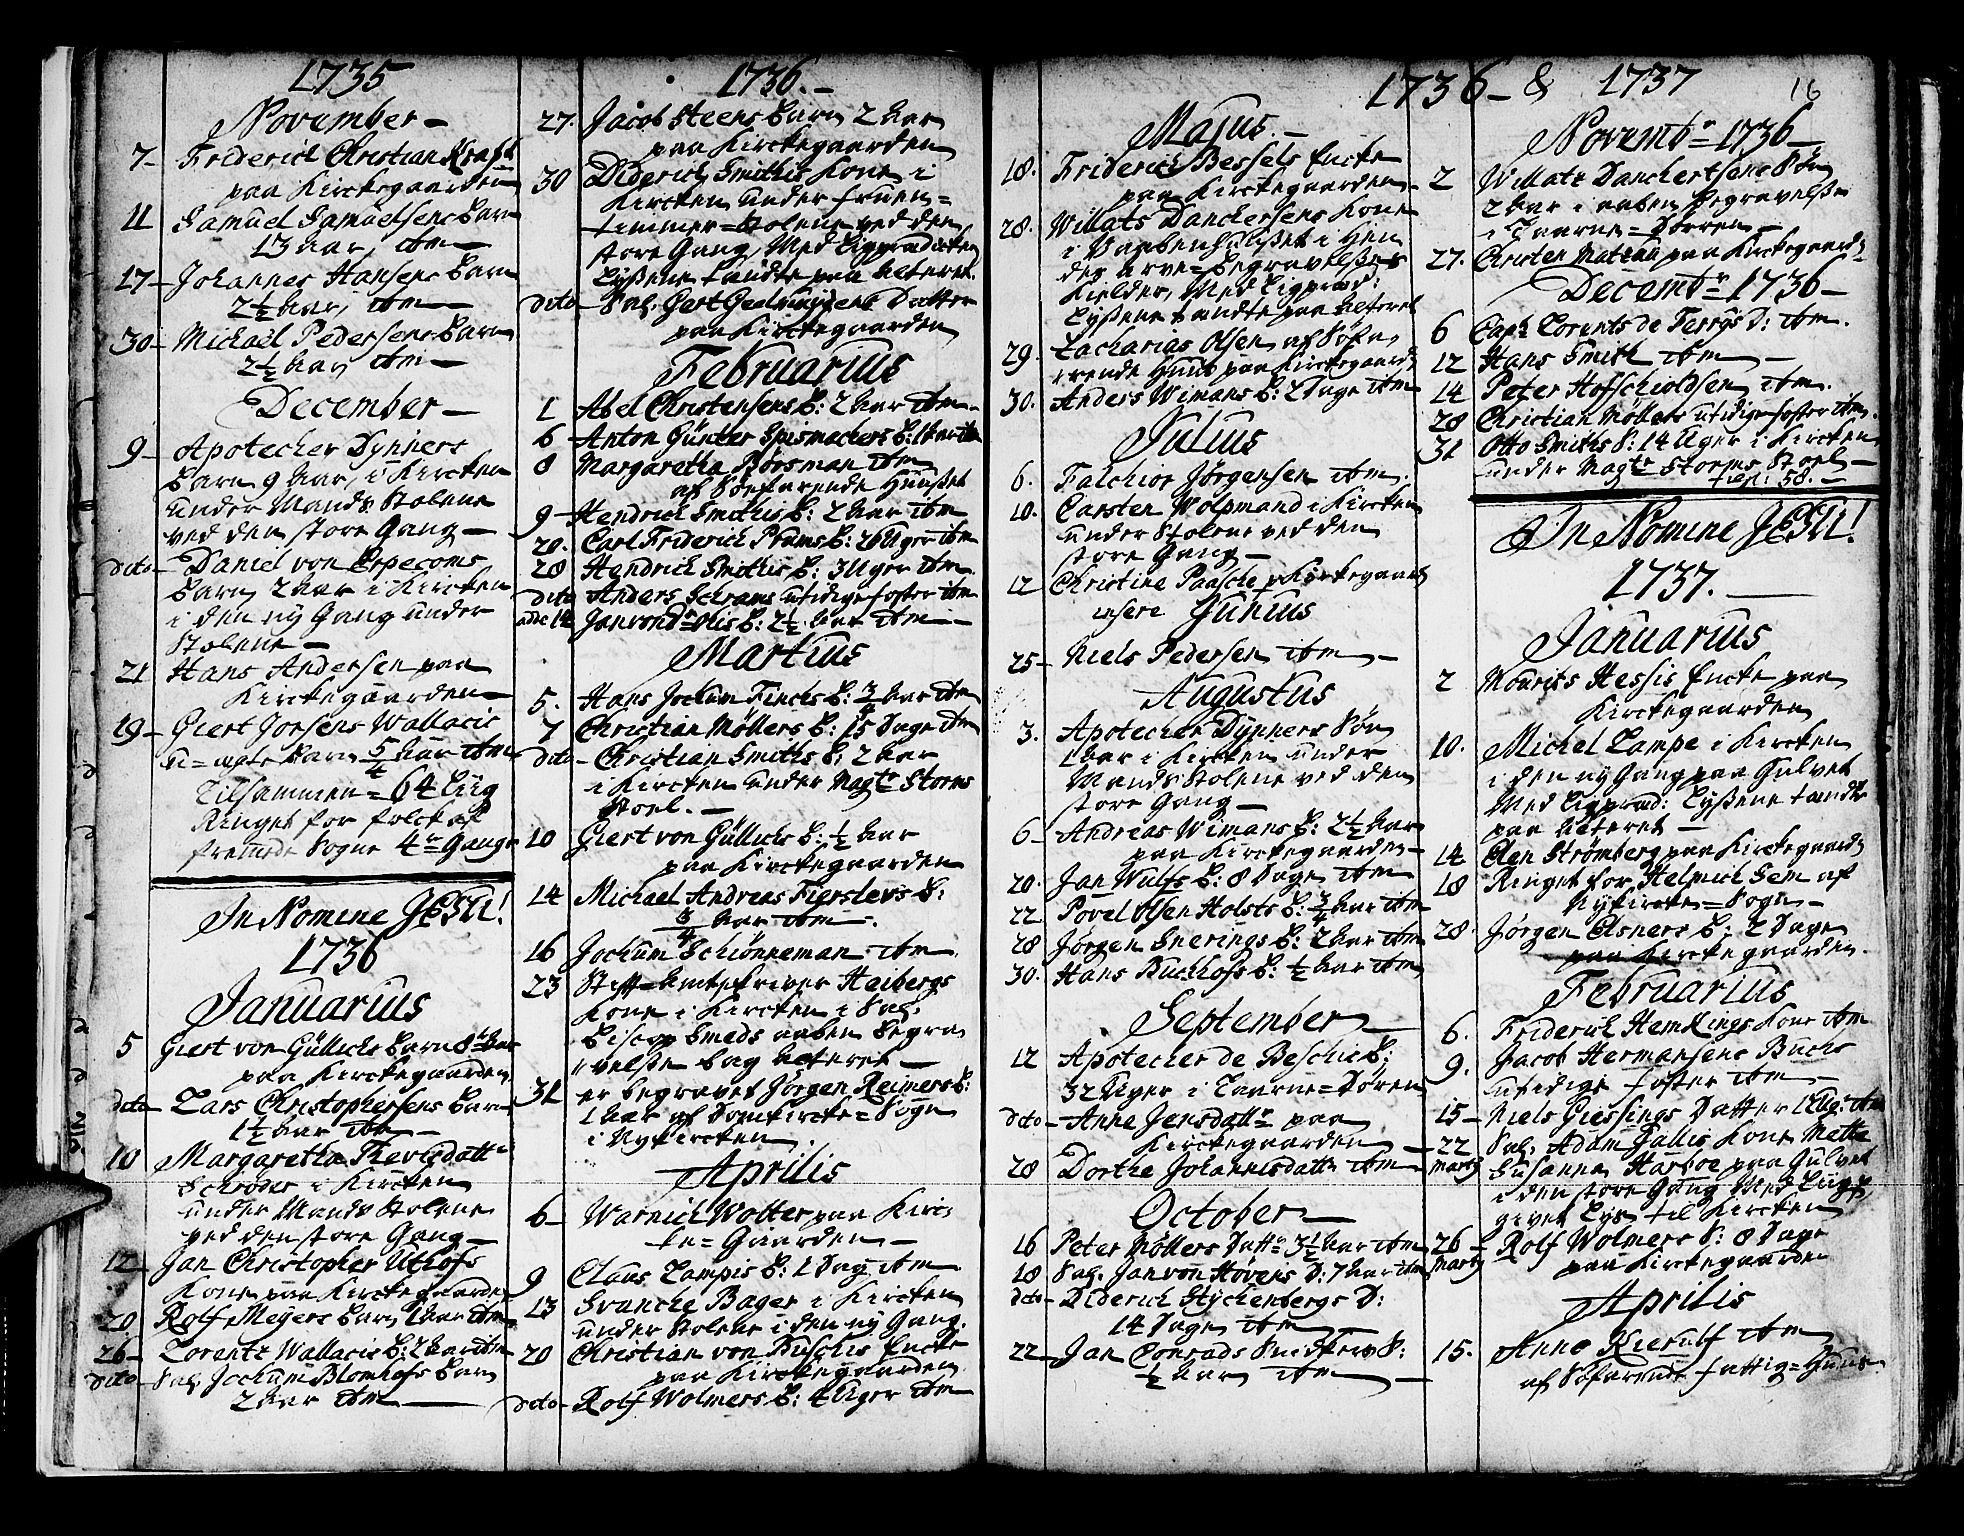 1735
November
7 Friderich Christian Kraft
paa Kirckegaarden
11 Samuel Samuelsens Barn
13 aar, ibm
17 Johannes Hansens Barn
2½ aar, ibm
30 Michael Pedersens Barn
2½ aar ibm
December
9 Apotecher Dynners
Barn 9 aar, i Kircken
under Mands Stolene
ved den store Gang
dito Daniel von Erpecoms
Barn 2 aar i Kircken
i den ny Gang under
Stolene
21 Hans Andersen paa
Kirckegaarden
19 Giert Jorsens Wallacis
u=ægte barn 5/4 aar ibm
Tilsammen = 64 Liig
Ringet for folck af
fremede Sogne 4re Gange
In Nomine JESU!
1736
Januarius
5 Giert von Güllichs Barn 8te aar
paa Kirckegaarden
dito Lars Christophersens Barn
1½ aar ibm
10 Margaretha Thevisdatter
Schrøder i Kircken
under Mands Stolene
ved den store Gang
12 Jan Christopher Uthofs
Kone paa Kirckegaarden
20 Rolf Meyers Barn 1 aar ibm
26 Lorentz Wallacis B: 2 aar ibm
dito Sal. Jochum Blomhofs Barn
2 aar ibm
1736.
27. Jacob Steens Barn 2 aar
paa Kirckegaarden
30 Diderich Smithis Kone i
Kircken under fruen=
timmer=Stolene ved den
store Gang, Med Ligpræd:
Lyßene tændte paa Alteret
dito Sal. Gert Geelmuydens Datter
paa Kirckegaarden
Februarius
1 Abel Christensens B: 2 aar ibm
6 Anton Günter Spismachers B: 1 aar ibm
8 Margaretha Børsman ibm
af Søefarende Huuset
9 Hendrich Smithis B: 2 aar ibm
20. Carl Friderich Prams B: 26 Uger ibm
28 Hendrich Smithis B: 3 Uger ibm
dito Anders Schrams utidige foster ibm
adie 14 Jan vond Nis B: 2½ aar ibm
Martius
5. Hans Jochum Finchs B: ¾ aar ibm
7 Christian Møllers B: 15 Dage ibm
dito Christian Smiths B: 2 aar
i Kircken under Magr Storms
Stoel.
10 Giert von Güllichs B: ½ aar
paa Kirckegaarden
14 Michael Andreas Fierslevs B:
¾ aar ibm
16 Jochum Schiønneman ibm
23 Stift=Amtskriver Heibergs
Kone i Kircken i Sal.
Biscop Smeds aaben Begra
velße bag Alteret
31 er begravet Jørgen Reimers B:
1 aar af Domkircke=Sogn
i Nykircken
Aprilis
6 Warnich Wolter paa Kirc
ke=Gaarden
9 Claus Lampis B: 1 Dag ibm
13 Svancke Bager i Kircken
under Stolene i den ny Gang.
20 Christian von Büschis Encke
paa Kirckegaarden
dito Rolf Wolmers B: 4 Uger ibm
1736 & 1737
16
Majus.
18. Friderich Bessels Encke
paa Kirckegaarden
28. Willats Danckersens Kone
i Vaabenhuuset i Hen
des Arve=Begravelses
Kielder, Med Ligpræd:
Lyßene tændte paa Alteret
29. Zacharias Olsen af Søfa
rende Huus paa Kirckegaard
30. Anders Wimans B: 2 Dage ibm
Julius
6. Falchior Jørgensen ibm
10. Carsten Wolpmand i Kircken
under Stolene ved den
store Gang
12 Christine Paasche p Kirckegaard
Junius
25 Niels Pedersen ibm
Augustus
3. Apotecher Dynners Søn
1 aar i Kircken under
Mands Stolene ved den
store Gang
6 Andreas Wimans B: 2½ aar
paa Kirckegaarden
20. Jan Wulfs B: 8 Dage ibm
22 Povel Olsen Holsts B: ¾ aar ibm
28 Jørgen Snerings B: 2 aar ibm
30. Hans Buchhofs B: ½ aar ibm
September
12 Apotecher de Beschis B:
32 Uger i Taarne=Døren
dito Anne Jensdattr paa
Kirckegaarden
28 Dorthe Johannisdattr ibm
October
16 Peter Møllers Dattr 3½ aar ibm
18 Sal. Jan von Høvens D: 7 aar ibm
dito Diderich Styckenbergs D:
14 Dage ibm
22 Jan Conrads Snidkers S:
½ aar ibm
Novembr 1736
2 Willatz Danckertsens Søn
2 aar i aaben Begravelße
i Taarne=Dørren
27. Christen Matzau paa Kirckegaard
Decembr 1736
6 Capt. Lorents de Ferrys D: ibm.
12 Hans Smith ibm
14 Peter Hofscholdsen ibm.
28 Christian Møllers utidige foster ibm.
31 Otto Smiths S: 14 Uger i Kircken
under Magr Storms Stoel
tien: 58.
In Nomine JESU!
1737.
Januarius
2 Mourits Hessis Encke paa
Kirckegaarden
10. Michel Lampe i Kircken
i den ny Gang paa Gulvet
Med Ligpræd: Lyßene tændte
paa Alteret
14 Elen Strømberg paa Kirckegaard
18 Ringet for Helmich Sem af
Nykircke=Sogn
28. Jørgen Elsners B: 2 Dage
paa Kirckegaarden.
Februarius
6. Friderich Hemklings Kone ibm
9. Jacob Hermansens Buchs
utidige foster ibm
15 Niels Giessings Datter 1 Uge ibm
22 Martz Sal. Adam Fallis Kone Mette
Susanna Harboe paa Gulvet
i den store Gang Med Liigpr
givet Lys til Kircken
26 Martz Rolf Wolmers S: 8 Dage
paa Kirckegaarden
Aprilis
15. Anne Kierulf ibm
af Søfarende fattig=Huus